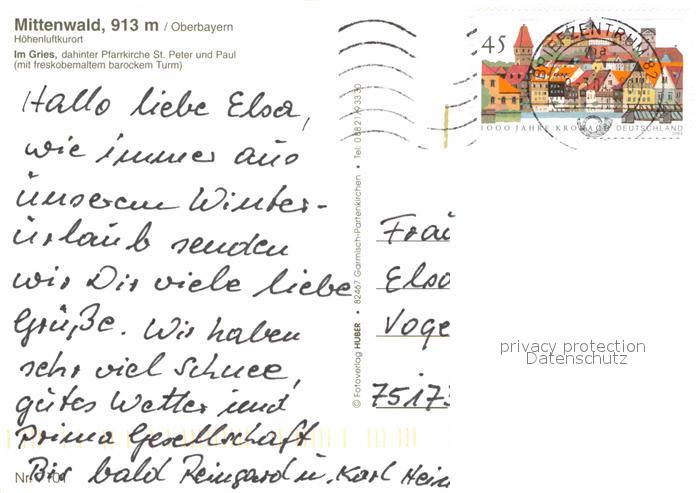 Mittenwald, 913 m / Oberbayern
Höhenluftkurort
Im Gries, dahinter Pfarrkirche St. Peter und Paul
(mit freskobemaltem barockem Turm)
Hallo liebe Elsa,
wie immer aus
unserem Winter-
urlaub senden
wir Dir viele liebe
Grüße. Wir haben
sehr viel Schnee,
gutes Wetter und
Prima Gesellschaft
Bis bald Reingard u. Karl Hein
Nr. 101
© Fotoverlag HUBER • 82467 Garmisch-Partenkirchen •
45
BRIEFZENTRUM 82
1000 JAHRE KRONACH DEUTSCHLAND
Frau
Elsa
Voge
7517
privacy protection
Datenschutz